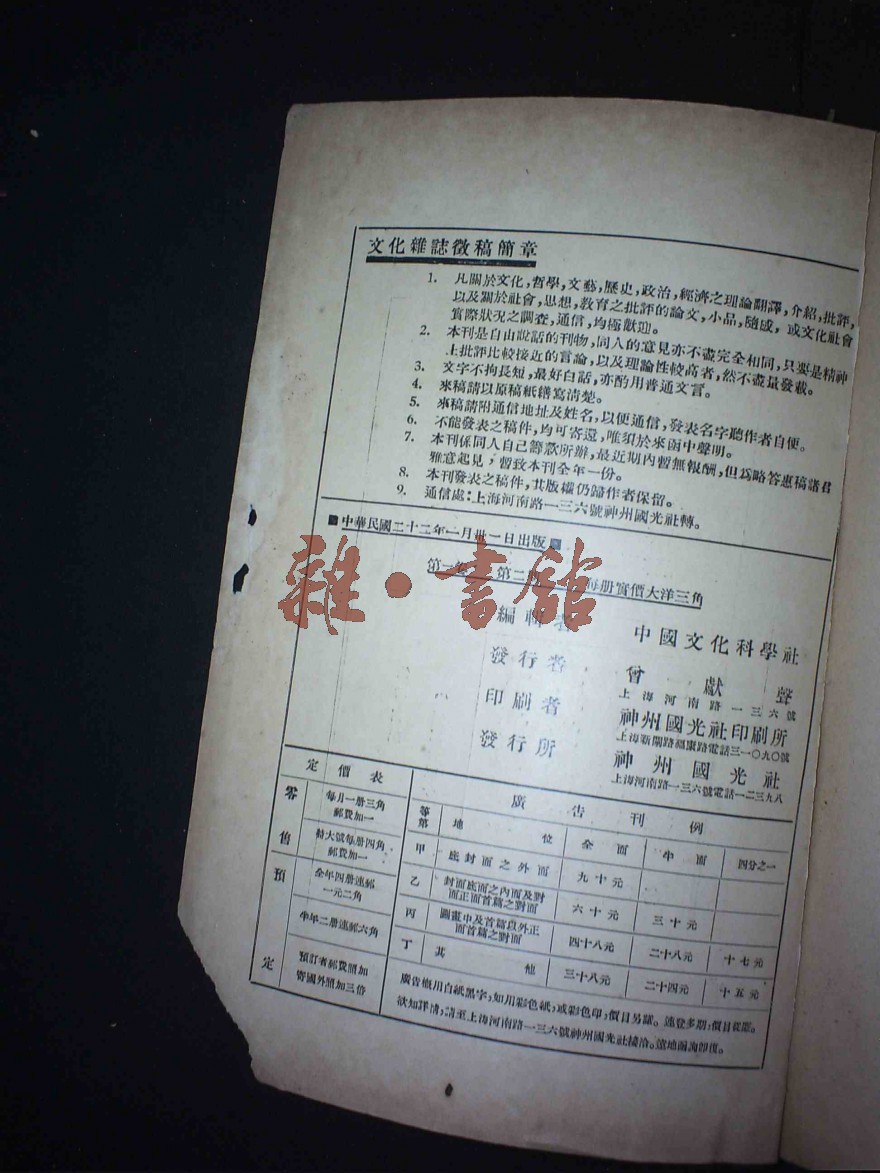 文化雜誌徵稿簡章
1. 凡關於文化,哲學,文藝,歷史,政治,經濟之理論翻譯,介紹,批評,
以及關於社會,思想,教育之批評的論文,小品,隨感,或文化社會
實際狀況之調查,通信,均極歡迎。
2. 本刊是自由說話的刊物,同人的意見亦不盡完全相同,只要是精神
上批評比較接近的言論,以及理論性較高者,然不盡量發載。
3. 文字不拘長短,最好白話,亦酌用普通文言。
4. 來稿請以原稿紙繕寫清楚。
5. 來稿請附通信地址及姓名,以便通信,發表名字聽作者自便。
6. 不能發表之稿件,均可寄還,唯須於來函中聲明。
7. 本刊係同人自己籌款所辦,最近期內暫無報酬,但為略答惠稿諸君
雅意起見,暫致本刊全年一份。
8. 本刊發表之稿件,其版權仍歸作者保留。
9. 通信處:上海河南路一三六號神州國光社轉。
■中華民國二十二年一月卅一日出版■
第一 第二 每册實價大洋三角
雜·書館
編輯者 中國文化科學社
發行者 曾獻聲
上海河南路一三六號
印刷者 神州國光社印刷所
上海新閘路福康路電話三一〇九〇號
發行所 神州國光社
上海河南路一三六號電話一二三九八
定價表
零售
每月一册三角
郵費加一
特大號每册四角
郵費加一
預定
全年四册連郵
一元二角
半年二册連郵六角
預訂者郵費照加
寄國外照加三倍
廣告刊例
等第 地位 全面 半面 四分之一
甲 底封面之外面 九十元
乙 封面底面之內面及對
而正面首篇之對面 六十元 三十元
丙 圖畫中及首篇段外正
面首篇之對面 四十八元 二十八元 十七元
丁 其他 三十八元 二十四元 十五元
廣告概用白紙黑字,如用彩色紙,或彩色印,價目另議。連登多期,價目從廉。
欲知詳情,請至上海河南路一三六號神州國光社接洽。遠地函詢即復。